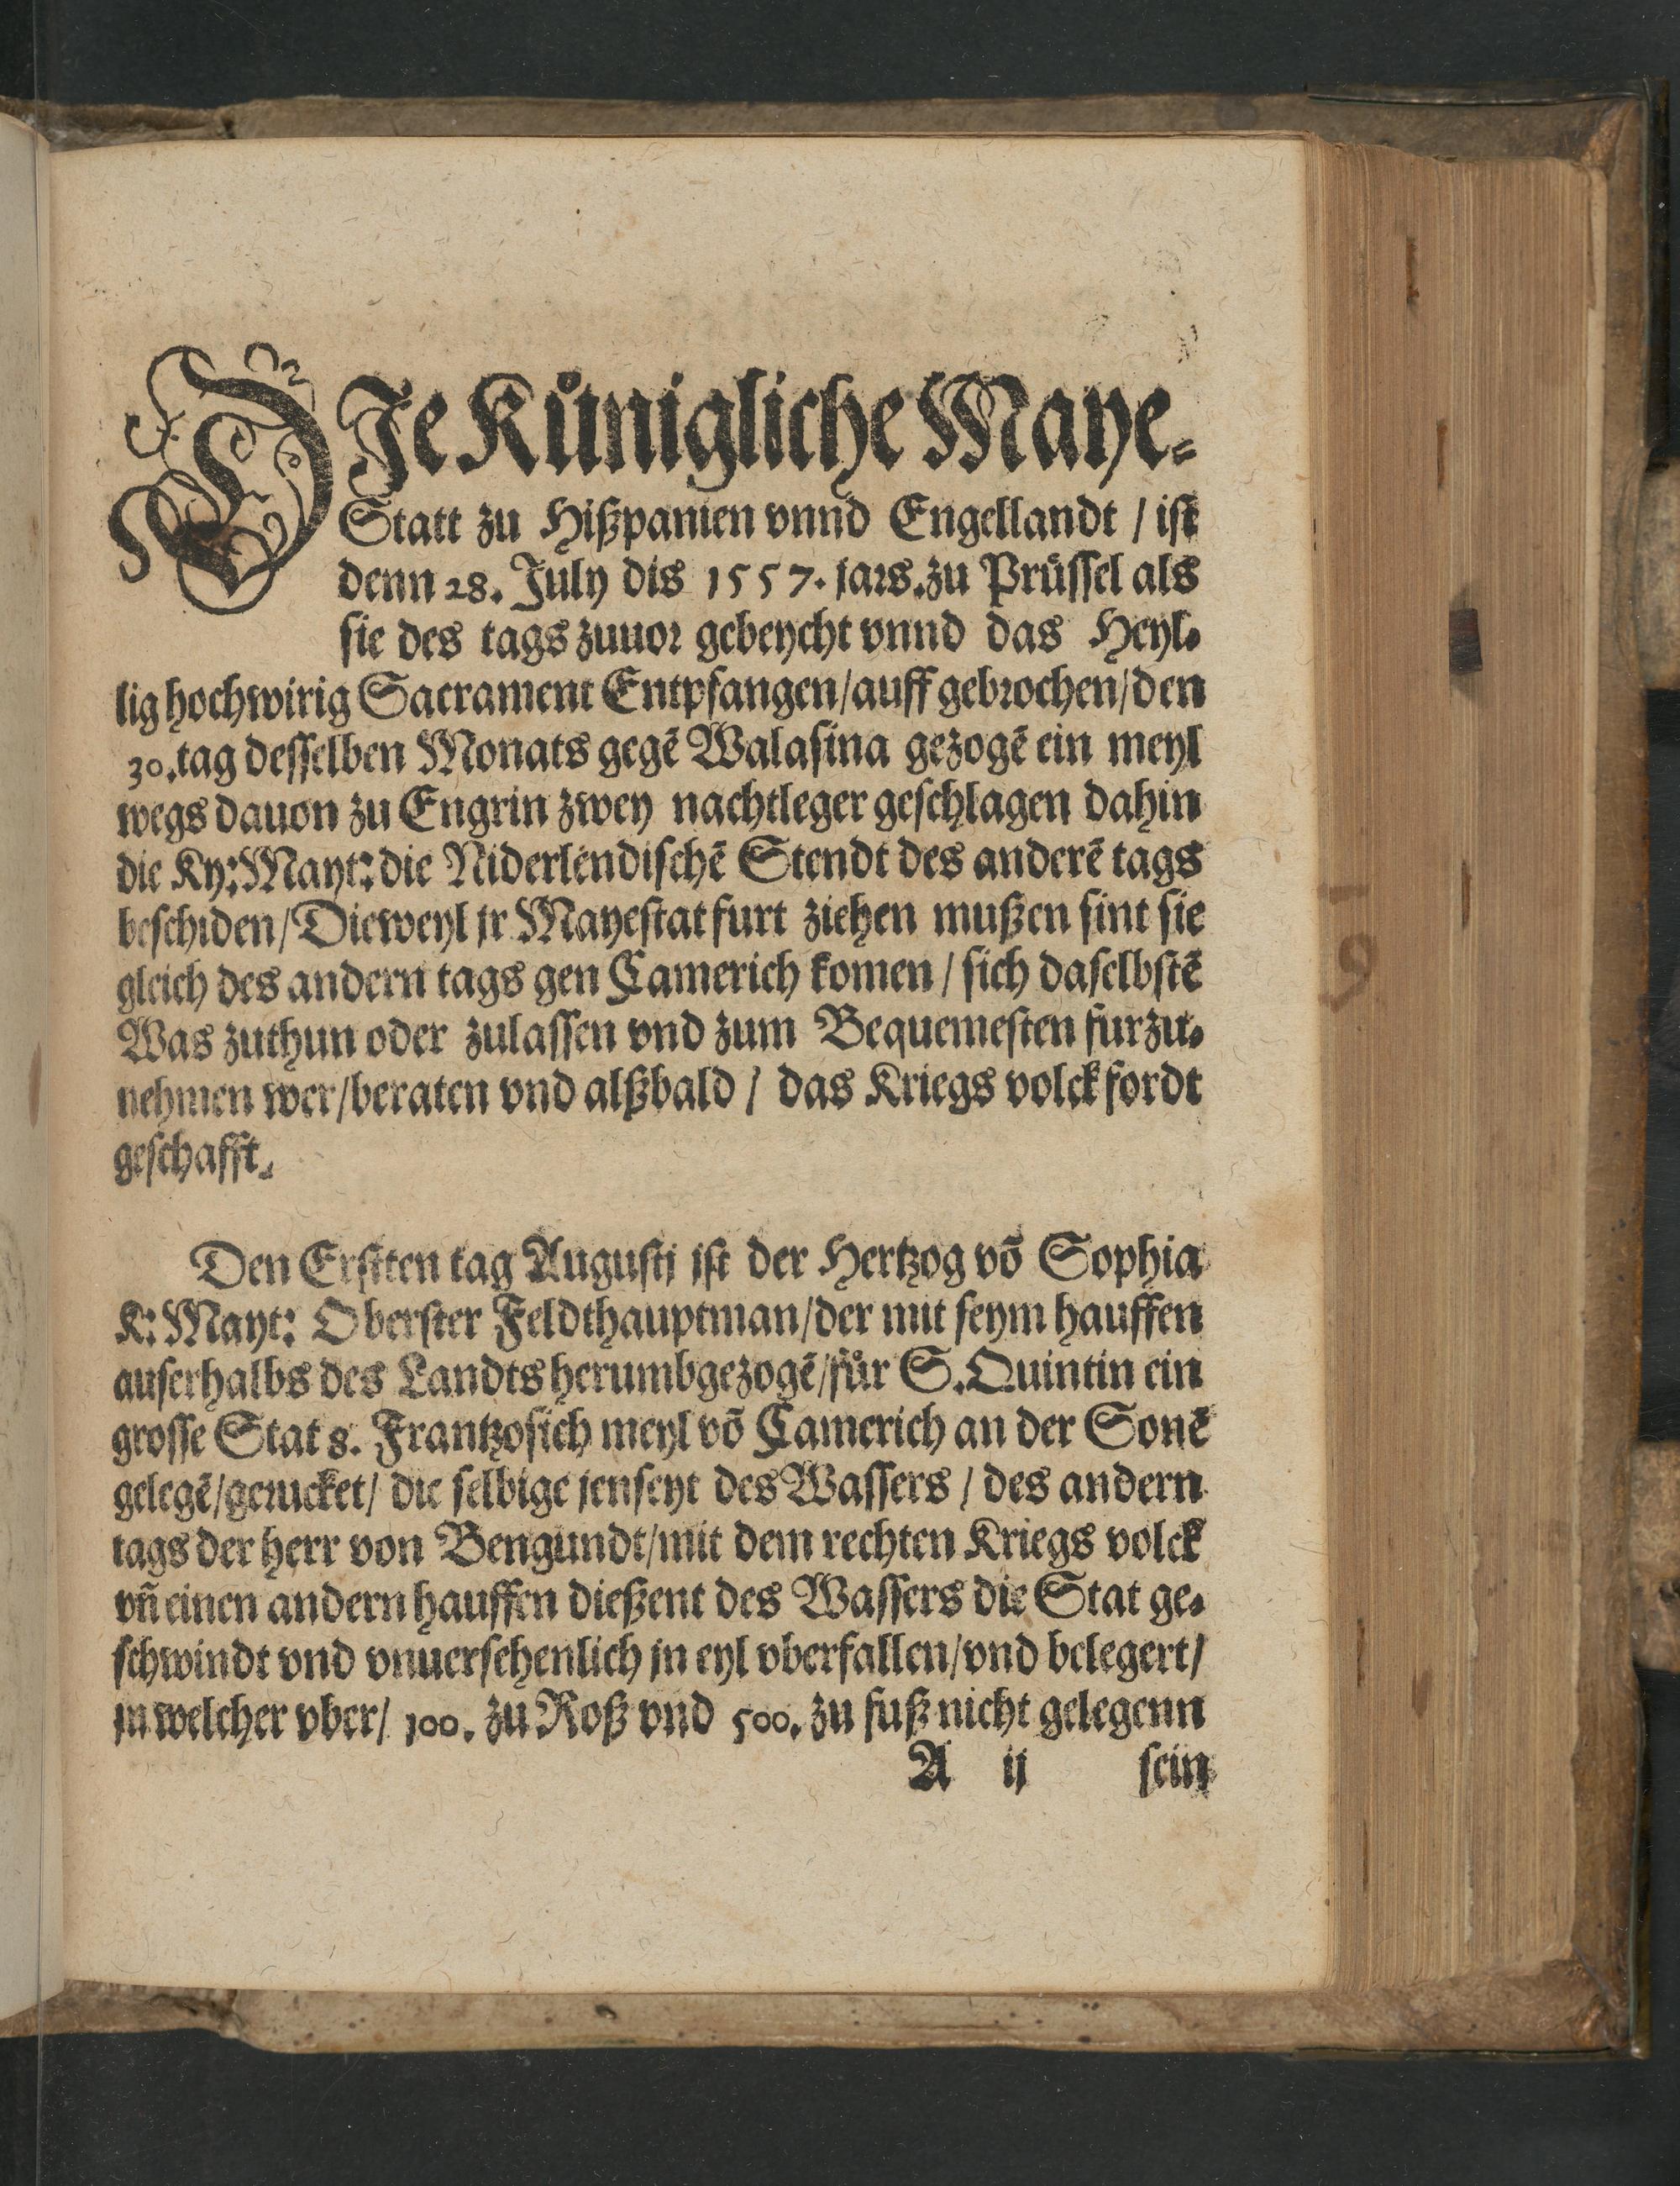 DJe Kůnigliche Maye-
Statt zu Hißpanien vnnd Engellandt / ist
denn 28. July dis 1557. jars. zu Prüssel als
sie des tags zuuor gebeycht vnnd das Heyl-
lig hochwirig Sacrament Entpfangen/auff gebrochen/den
30. tag desselben Monats gegē Walasina gezogē ein meyl
wegs dauon zu Engrin zwey nachtleger geschlagen dahin
die Ky: Mayt: die Niderlendischē Stendt des anderē tags
beschiden/Dieweyl jr Mayestat furt ziehen mußen sint sie
gleich des andern tags gen Camerich komen / sich daselbstē
Was zuthun oder zulassen vnd zum Bequemesten furzu-
nehmen wer/beraten vnd alßbald / das Kriegs volck fordt
geschafft.
Den Ersten tag Augustj ist der Hertzog võ Sophia
K: Mayt: Oberster Feldthauptman/der mit seym hauffen
auserhalbs des Landts herumbgezogē/für S. Quintin ein
grosse Stat 8. Frantzosich meyl võ Camerich an der Sonē
gelegē/gerucket/ die selbige jenseyt des Wassers / des andern
tags der herr von Bengundt/mit dem rechten Kriegs volck
vñ einen andern hauffen dießent des Wassers die Stat ge-
schwindt vnd vnuersehenlich jn eyl vberfallen/vnd belegert/
jn welcher vber/ 100. zu Roß vnd 500. zu fuß nicht gelegenn
A ij sein
19